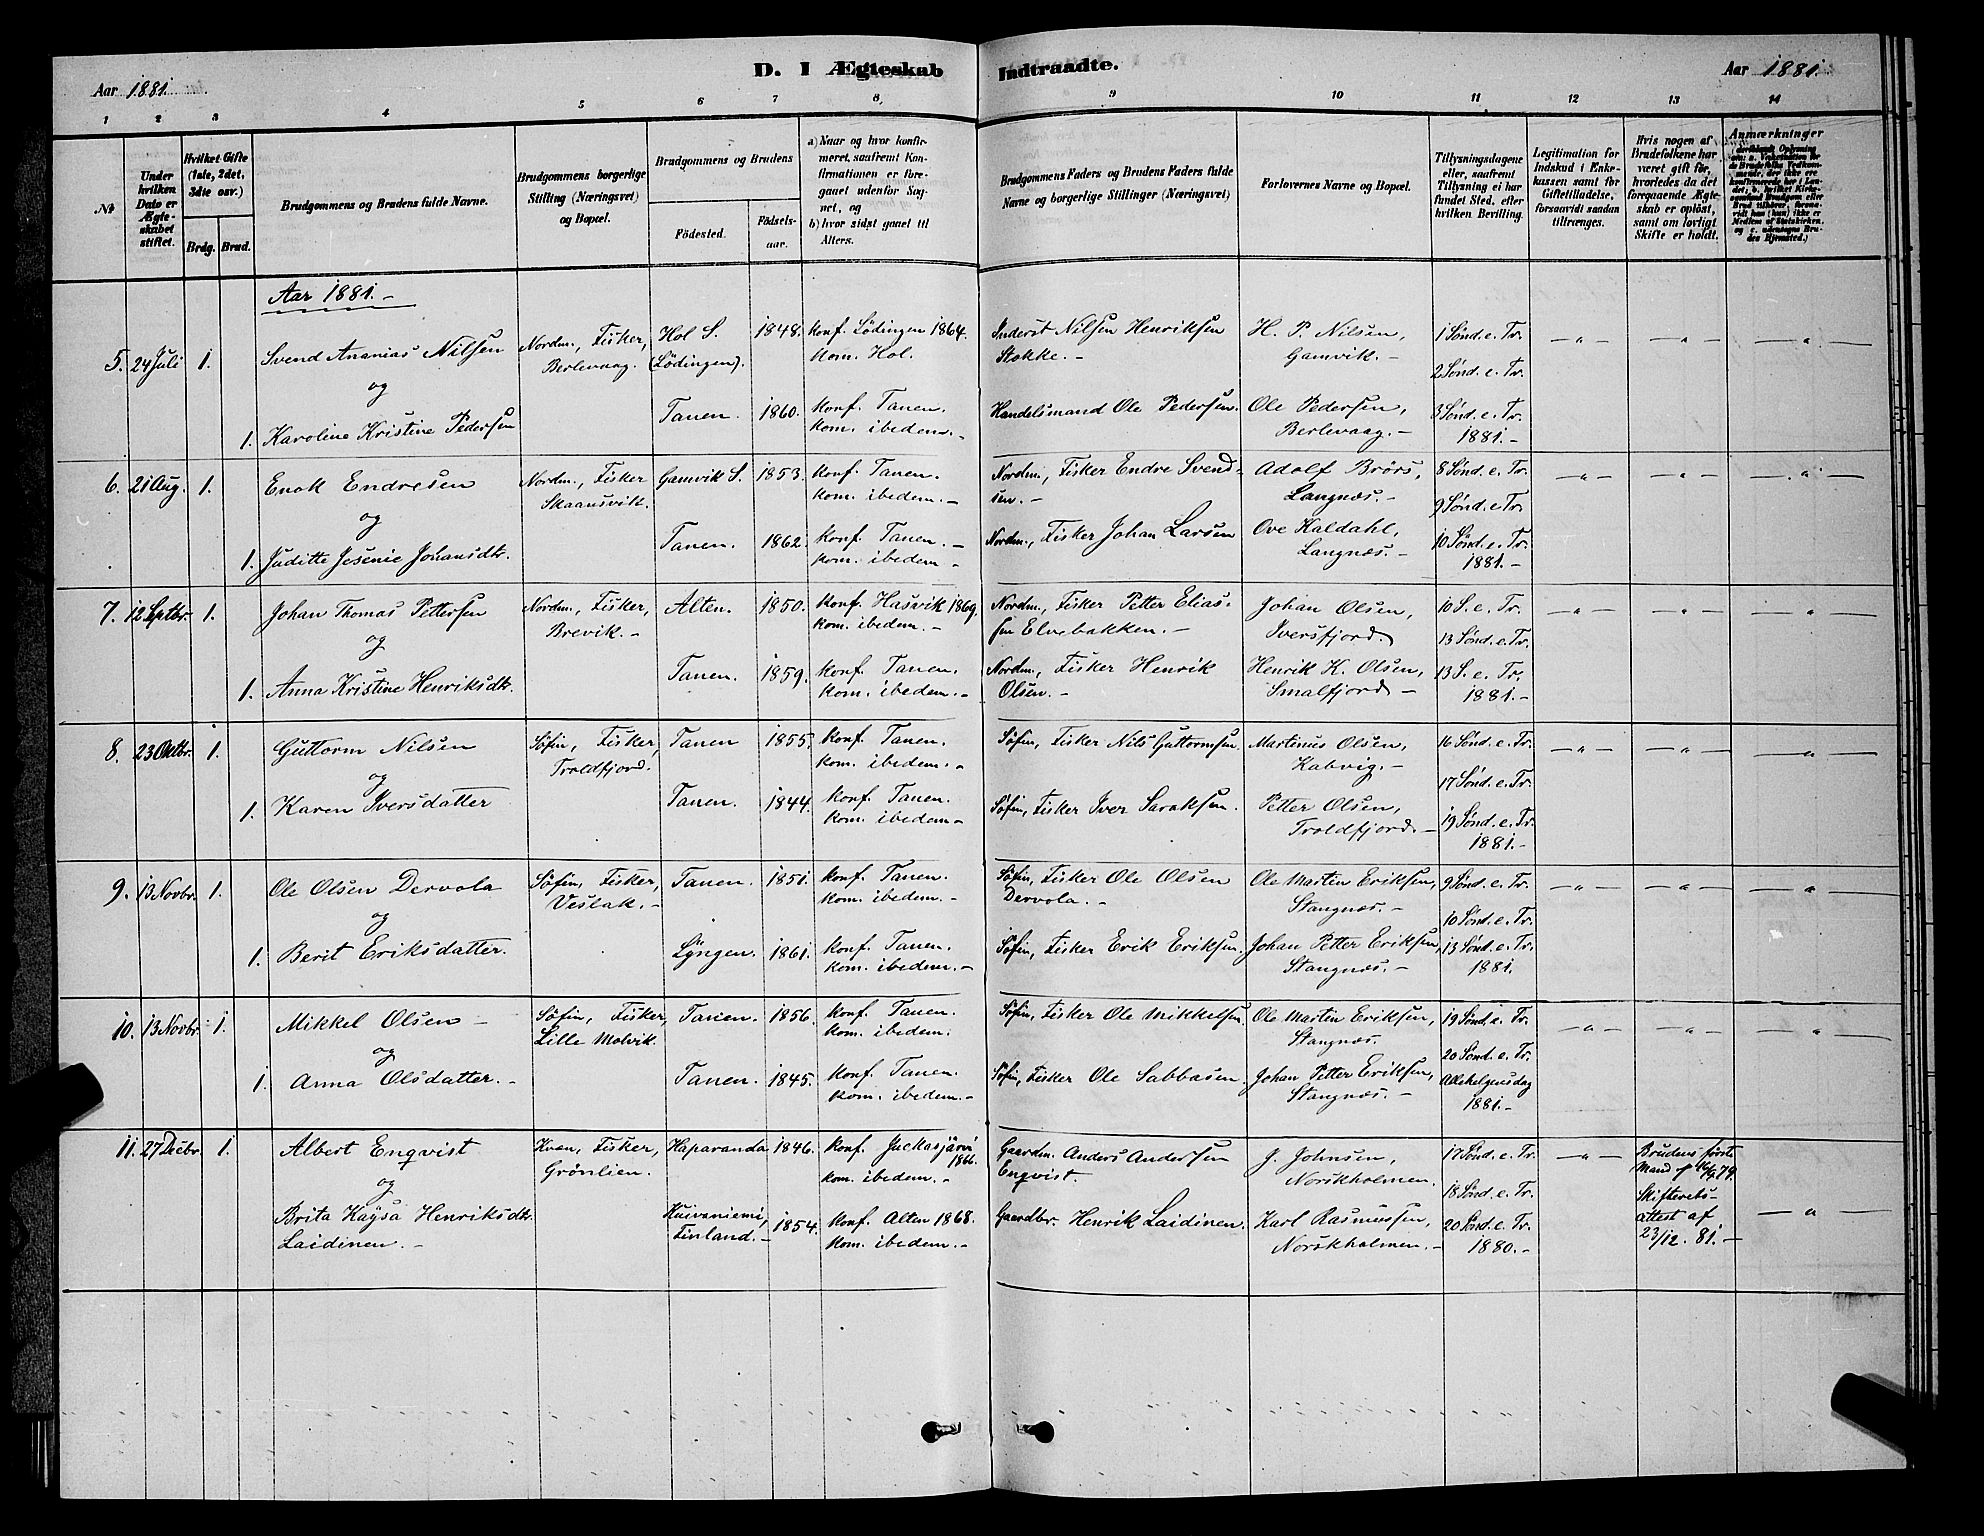 Aar 1881.
D. I Ægteskab Indtraadte.
Aar 1881.
1 2 3 4 5 6 7 8. 9 10 11 12 13 14
№
Under hvilken Dato er Ægteskabet stiftet.
Hvilket Gifte (1ste, 2det, 3die osv.)
Brdg. Brud.
Brudgommens og Brudens fulde Navne.
Brudgommens borgerlige Stilling (Næringsvei) og Bopæl.
Brudgommens og Brudens
Födested.
Födselsaar.
a) Naar og hvor konfirmeret, saafremt Konfirmationen er foregaaet udenfor Sognet, og
b) hvor sidst gaaet til Alters.
Brudgommens Faders og Brudens Faders fulde Navne og borgerlige Stillinger (Næringsvei)
Forlovernes Navne og Bopæl.
Tillysningsdagene eller, saafremt Tillysning ei har fundet Sted, efter hvilken Bevilling.
Legitimation for Indskud i Enkekassen samt for Giftetilladelse, forsaavidt saadan tiltrænges.
Hvis nogen af Brudefolkene har været gift før, hvorledes da det foregaaende Ægteskab er opløst, samt om lovligt Skifte er holdt.
Anmærkninger
Aar 1881.-
5. 24 Juli 1. Svend Ananias Nilsen Nordm., Fisker, Berlevaag. Hol S. (Lödingen). 1848. Konf. Lödingen 1864. Kom. Hol. Inderst Nilsen Henriksen Stokke.- H. P. Nilsen, Gamvik.- 1 Sønd. e. Tr. 2 Sønd. e. Tr. -"- -"- -"-
og
1. Karoline Kristine Pedersen Tanen. 1860. Konf. Tanen. Kom. ibedem.- Handelsmand Ole Pedersen. Ole Pedersen, Berlevaag.- 3 Sønd. e. Tr. 1881.-
6. 21 Aug. 1. Enok Endresen Nordm., Fisker Skaansvik. Gamvik S. 1853. Konf. Tanen. Kom. ibedem.- Nordm., Fisker Endre Svendsen.- Adolf Brörs, Langnæs.- 8 Sønd. e. Tr. 9 Sønd. e. Tr. -"- -"- -"-
og
1. Juditte Jesenie Johansdtr. Tanen. 1862. Konf. Tanen.- Kom. ibedem.- Nordm., Fisker Johan Larsen Ove Kaldahl, Langnæs.- 10 Sønd. e. Tr. 1881.-
7. 12 Septbr. 1. Johan Thomas Pettersen Nordm., Fisker, Brevik.- Alten. 1850. Konf. Hasvik 1869. Kom. ibedem.- Nordm., Fisker Petter Eliassen Elvebakken.- Johan Olsen, Iversfjord. 10 S. e. Tr. 13 Sønd. e. Tr. -"- -"- -"-
og
1. Anna Kristine Henriksdtr. Tanen. 1859. Konf. Tanen. Kom. ibedem.- Nordm., Fisker Henrik Olsen.- Henrik K. Olsen, Smalfjord- 13 S. e. Tr. 1881.-
8. 23 Octbr. 1. Guttorm Nilsen Søfin, Fisker, Troldfjord. Tanen 1855. Konf. Tanen. Kom. ibedem.- Søfin, Fisker Nils Guttormsen. Martinus Olsen, Kabvig.- 16 Sønd. e. Tr. 17 Sønd. e. Tr. -"- -"- -"-
og
1. Karen Iversdatter Tanen. 1844. Konf. Tanen. Kom. ibedem- Søfin, Fisker Iver Saraksen. Petter Olsen, Troldfjord.- 19 Sønd. e. Tr. 1881.-
9. 13 Novbr. 1. Ole Olsen Dervola Søfin, Fisker, Vestak.- Tanen. 1851. Konf. Tanen. Kom. ibedem.- Søfin, Fisker Ole Olsen Dervola.- Ole Martin Eriksen, Stangnæs.- 9 Sønd. e. Tr. 10 Sønd. e. Tr. -"- -"- -"-
og
1. Berit Eriksdatter. Lyngen. 1861. Konf. Tanen. Kom. ibedem.- Søfin, Fisker Erik Eriksen. Johan Petter Eriksen, Stangnæs.- 13 Sønd. e. Tr. 1881.
10. 13 Novbr. 1. Mikkel Olsen- Søfin, Fisker, Lille Molvik. Tanen. 1856. Konf. Tanen. Kom. ibedem. Søfin, Fisker Ole Mikkelsen. Ole Martin Eriksen, Stangnæs. 19 Sønd. e. Tr. 20 Sønd. e. Tr. -"- -"- -"-
og
1. Anna Olsdatter.- Tanen. 1845. Konf. Tanen. Kom. ibedem.- Søfin, Fisker Ole Sabbasen. Johan Petter Eriksen, Stangnæs.- Allehelgensdag 1881.-
11. 27 Decbr. 1. Albert Enqvist Kven, Fisker, Grönlien. Haparanda 1846. Konf. Juckasjärvi 1866. Kom. ibedem.- Gaardm. Anders Andersen Enqvist. J. Johnsen, Norskholmen. 17 Sønd. e. Tr. 18 Sønd. e. Tr. -"- Brudens første Mand
og
Brita Kaysa Henriksdtr. Laidinen.- Kuivaniemi, Finland.- 1854. Konf. Alten 1868. Kom. ibedem.- Gaardbr. Henrik Laidinen. Karl Rasmussen, Norskholmen.- 20 Sønd. e. Tr. 1880.- Skifterets-attest af 23/12. 81.- -"-